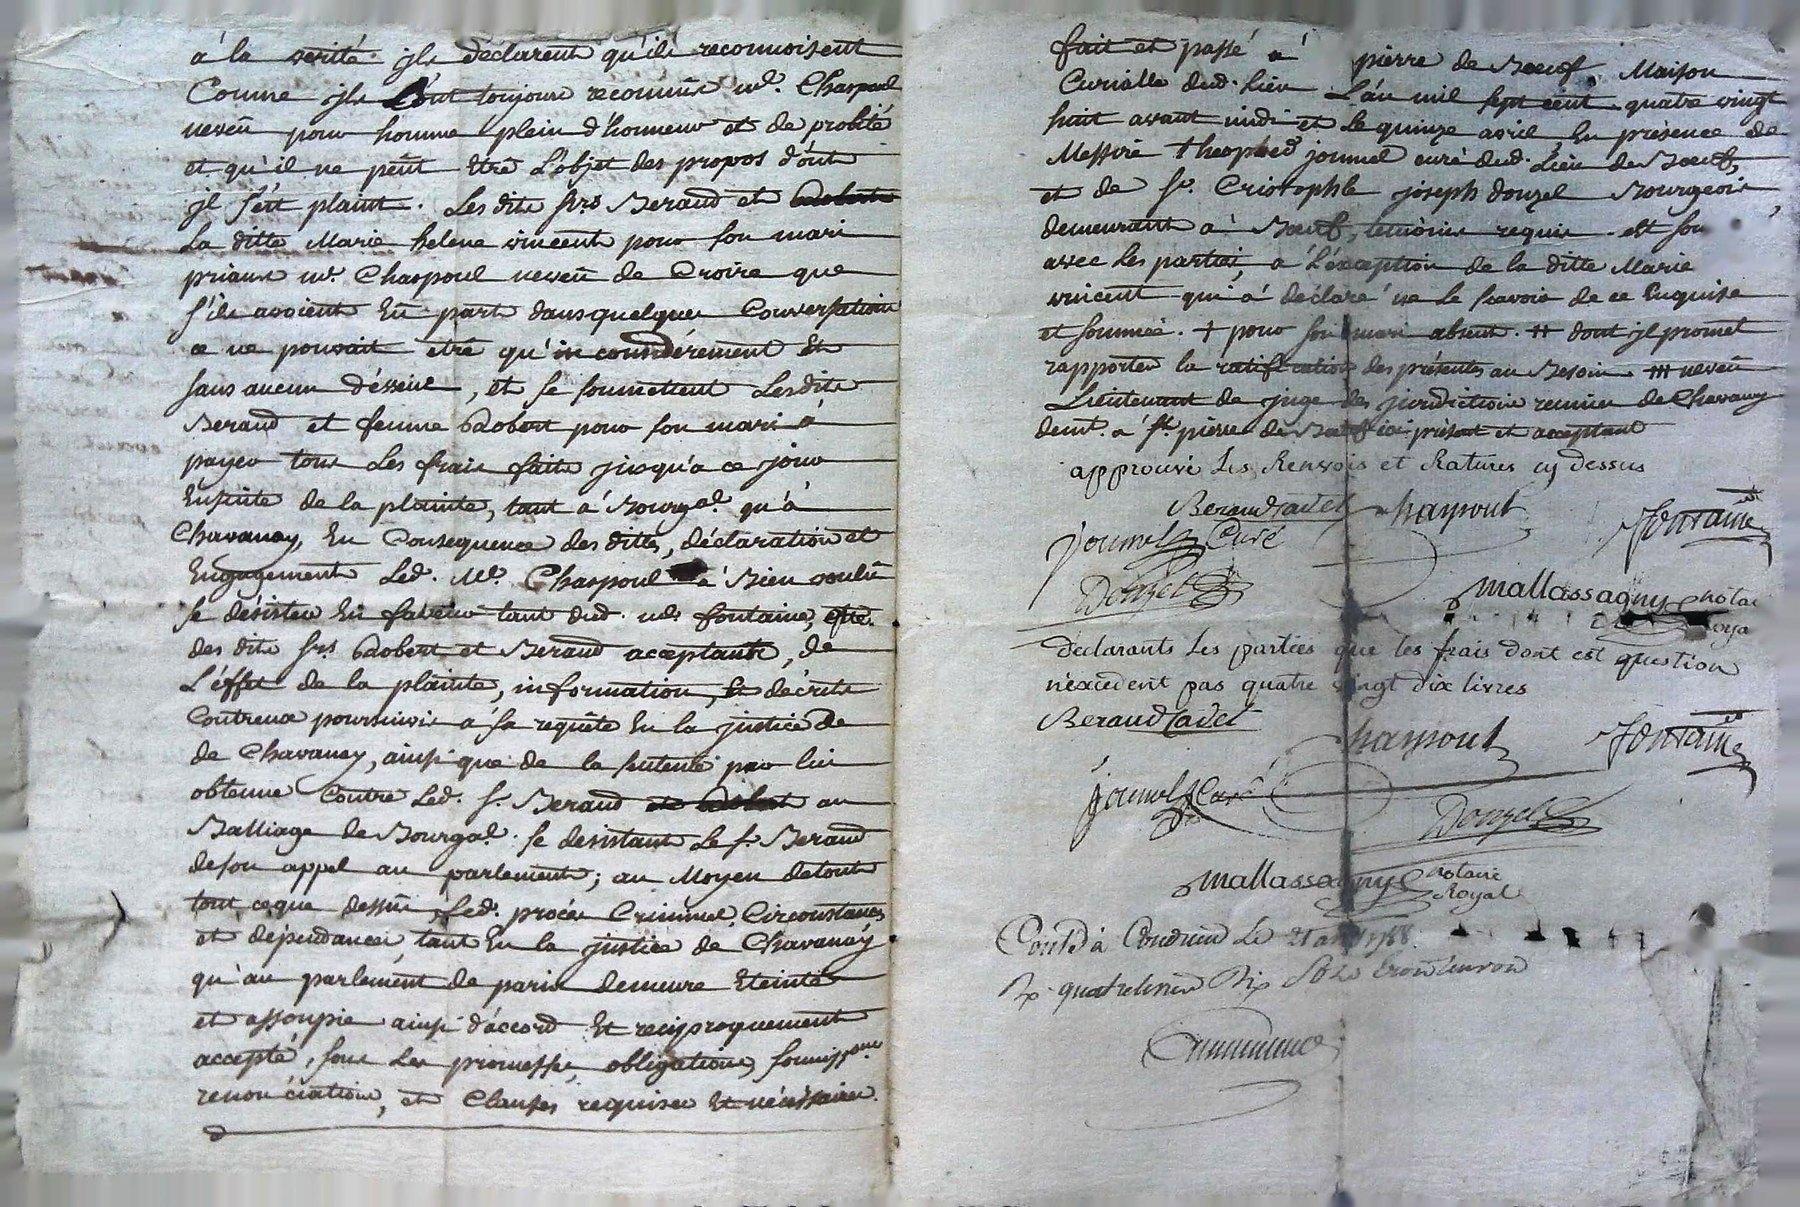 à la verité. jls declarent qu'ils reconnoissent
Comme jls L'ont toujours reconnus mr. Chaspoul
neveu pour homme plein d'honneur et de probité
et qu'il ne peut Etre L'objet des propos d'ont
jl s'est plaint. Les dits srs Beraud et Robert
La ditte Marie helene vincent pour son mari
priants mr. Chaspoul neveu de Croire que
s'ils avoient Eu part dans quelques Conversations
ce ne pouvait etre qu'inconsidérement Et
sans aucun dessein, et se soumettent Les dits
Beraud et femme Robert pour son mari à
payer tous Les frais faits jusqu'a ce jour
Ensuite de la plainte, tant à Bourgal. qu'à
Chavanay, En Consequence des dittes déclaration et
Engagement Led. Mr. Chaspoul a Bien voulu
se désister En faveur tant dud. mr. fontaine, que
des dits srs Robert et Beraud acceptants, de
L'éffet de la plainte, information, Et décrets
Contreux poursuivis a sa requête En la justice de
de Chavanay, ainsi que de la sentence par lui
obtenue Contre Led. sr. Beraud et Robert au
Balliage de Bourgal. se desistant Le sr. Beraud
de son appel au parlement; au Moyen de tout
tout ceque dessus, Led. procès Criminel Circonstances
et dependances, tant En la justice de Chavanay
qu'au parlement de paris demeure Eteints
et assoupis ainsi d'accord Et reciproquement
accepté, sous Les promesses, obligations, soumissons
renonciations, et Clauses requises Et nécéssaires.
fait et passé à pierre de Boeuf Maison
Curialle dud. Lieu L'an mil sept cent quatre vingt
huit avant midi et Le quinze avril, En présence de
Messire theophed journel curé dud. Lieu de Boeuf,
et de sr. Cristophle joseph donzel Bourgeois
demeurant à Boeuf, témoins requis et sou
avec Les parties, a L'exception de la ditte Marie
vincent qui a déclaré ne Le scavoir de ce Enquise
et sommée. + pour son mari absent. ++ dont jl promet
rapporter la ratification des présentes au Besoin +++ neveu
Lieutenant de juge des jurdictions reunies de Chavanay
demt. a st. pierre de Boeuf ici présent et acceptant
approuvé Les Renvois et Ratures cy dessus
Beraud Cadet Chaspoul fontaine
journel Curé
Donzel
Mallassagny Notai
Roya
déclarants Les parties que les frais dont est question
n'excedent pas quatre vingt dix livres
Beraud Cadet
Chaspoul fontaine
journel Curé
Donzel
Mallassagny Notaire
Royal
Conlé à Condrieu Le 21 avril 1788.